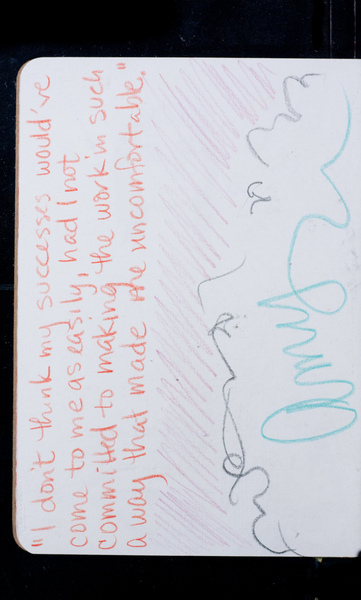 "I don't think my successes would've
come to me as easily, had I not
committed to making the work in such
a way that made me uncomfortable."